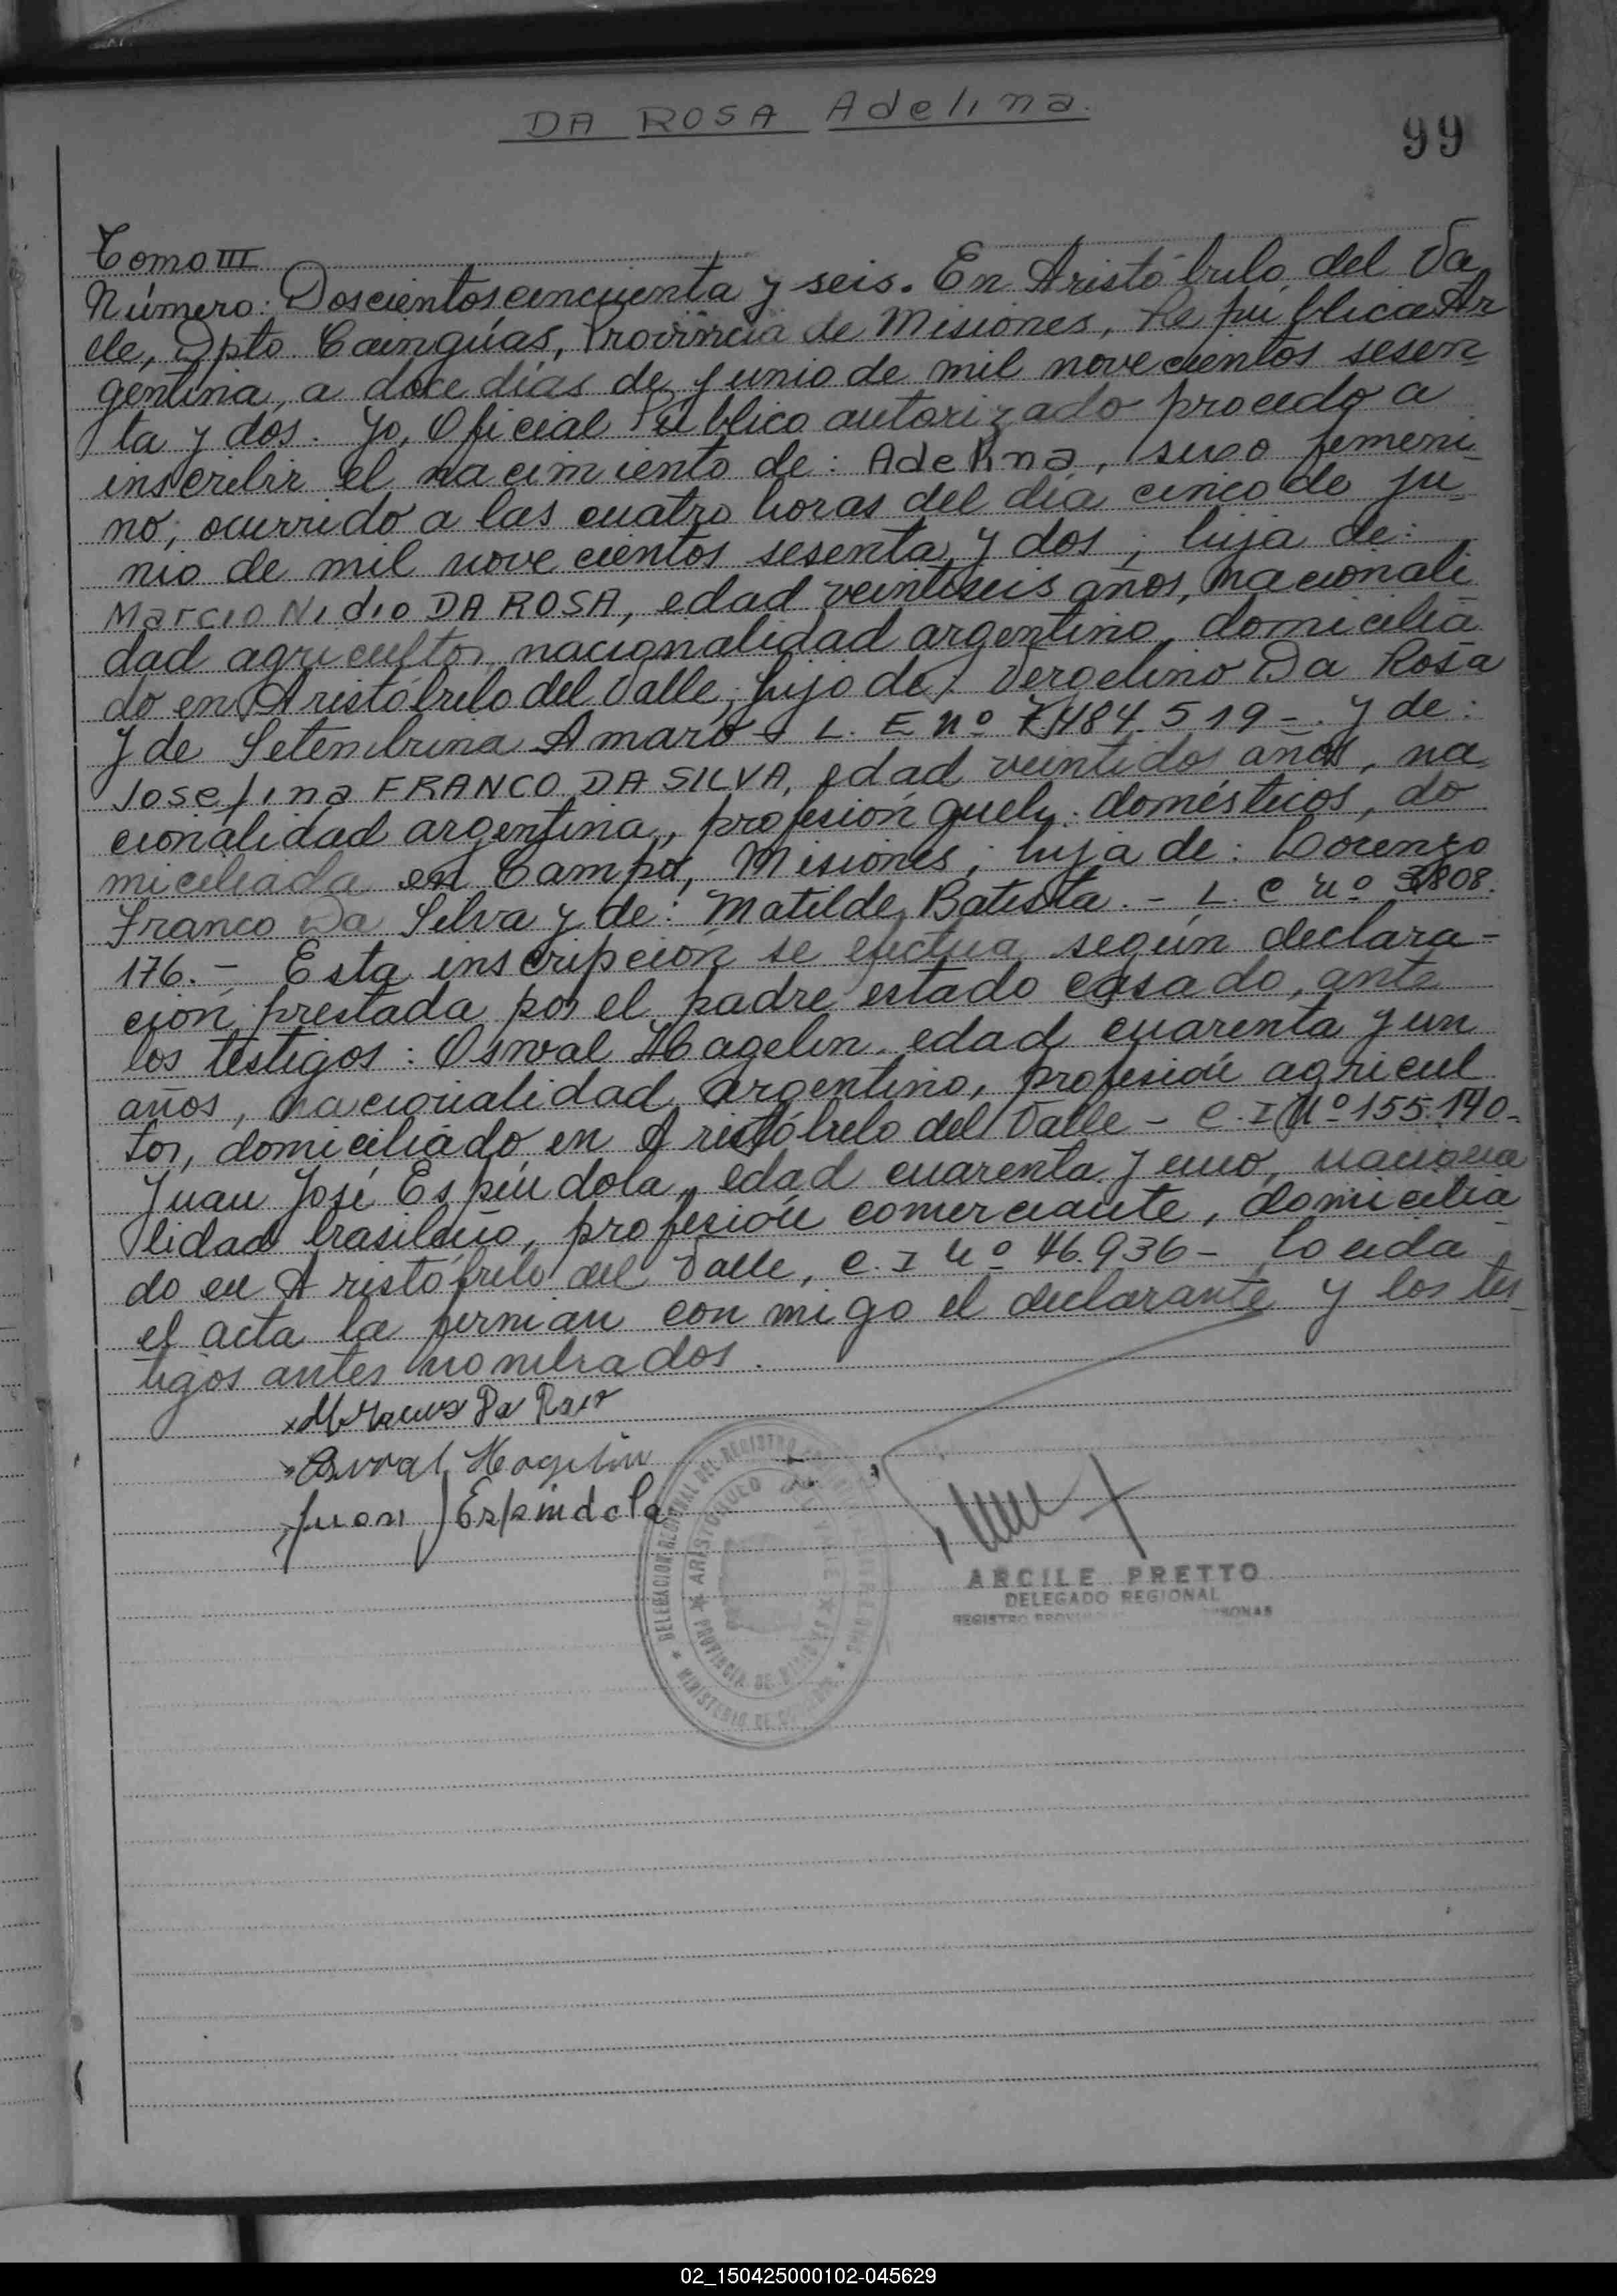 DA ROSA Adelina.
99
Tomo III
Número: Doscientos cincuenta y seis. En Aristóbulo del Va
lle, Dpto Cainguás, Provincia de Misiones, República Ar
gentina, a doce días de junio de mil novecientos sesen-
ta y dos. Yo, Oficial Público autorizado procedo a
inscribir el nacimiento de: Adelina, sexo femeni
no; ocurrido a las cuatro horas del día cinco de ju-
nio de mil novecientos sesenta y dos; hija de:
Marcio Nidio DA ROSA, edad veintiseis años, nacionali
dad agricultor, nacionalidad argentino, domicilia
do en Aristóbulo del Valle; hijo de: Vergelino Da Rosa
y de Setembrina Amaro - L. E nº 7.484.519 - y de:
Josefina FRANCO DA SILVA, edad veintidos años, na
cionalidad argentina, profesión queh. domésticos, do
miciliada en Campo, Misiones; hija de: Lorenzo
Franco Da Silva y de: Matilde Batista. - L. C nº 3.808.
176. - Esta inscripción se efectua según declara-
ción prestada por el padre estado casado, ante
los testigos: Osval Hagelin edad cuarenta y un
años, nacionalidad argentino, profesión agricul
tor, domiciliado en Aristóbulo del Valle - C. I Nº 155.140 -
Juan José Espíndola, edad cuarenta y uno, naciona
lidad brasileño, profesión comerciante, domicilia
do en Aristóbulo del Valle, C. I nº 46.936 - Leida
el acta la firman con migo el declarante y los tes-
tigos antes nombrados.
Da Rosa
Osval Hagelin
Juan J Espindola
DELEGACION REGIONAL DEL REGISTRO
ARISTOBULO DEL VALLE
PROVINCIA DE MISIONES
MINISTERIO DE
ARCILE PRETTO
DELEGADO REGIONAL
REGISTRO
02_150425000102-045629